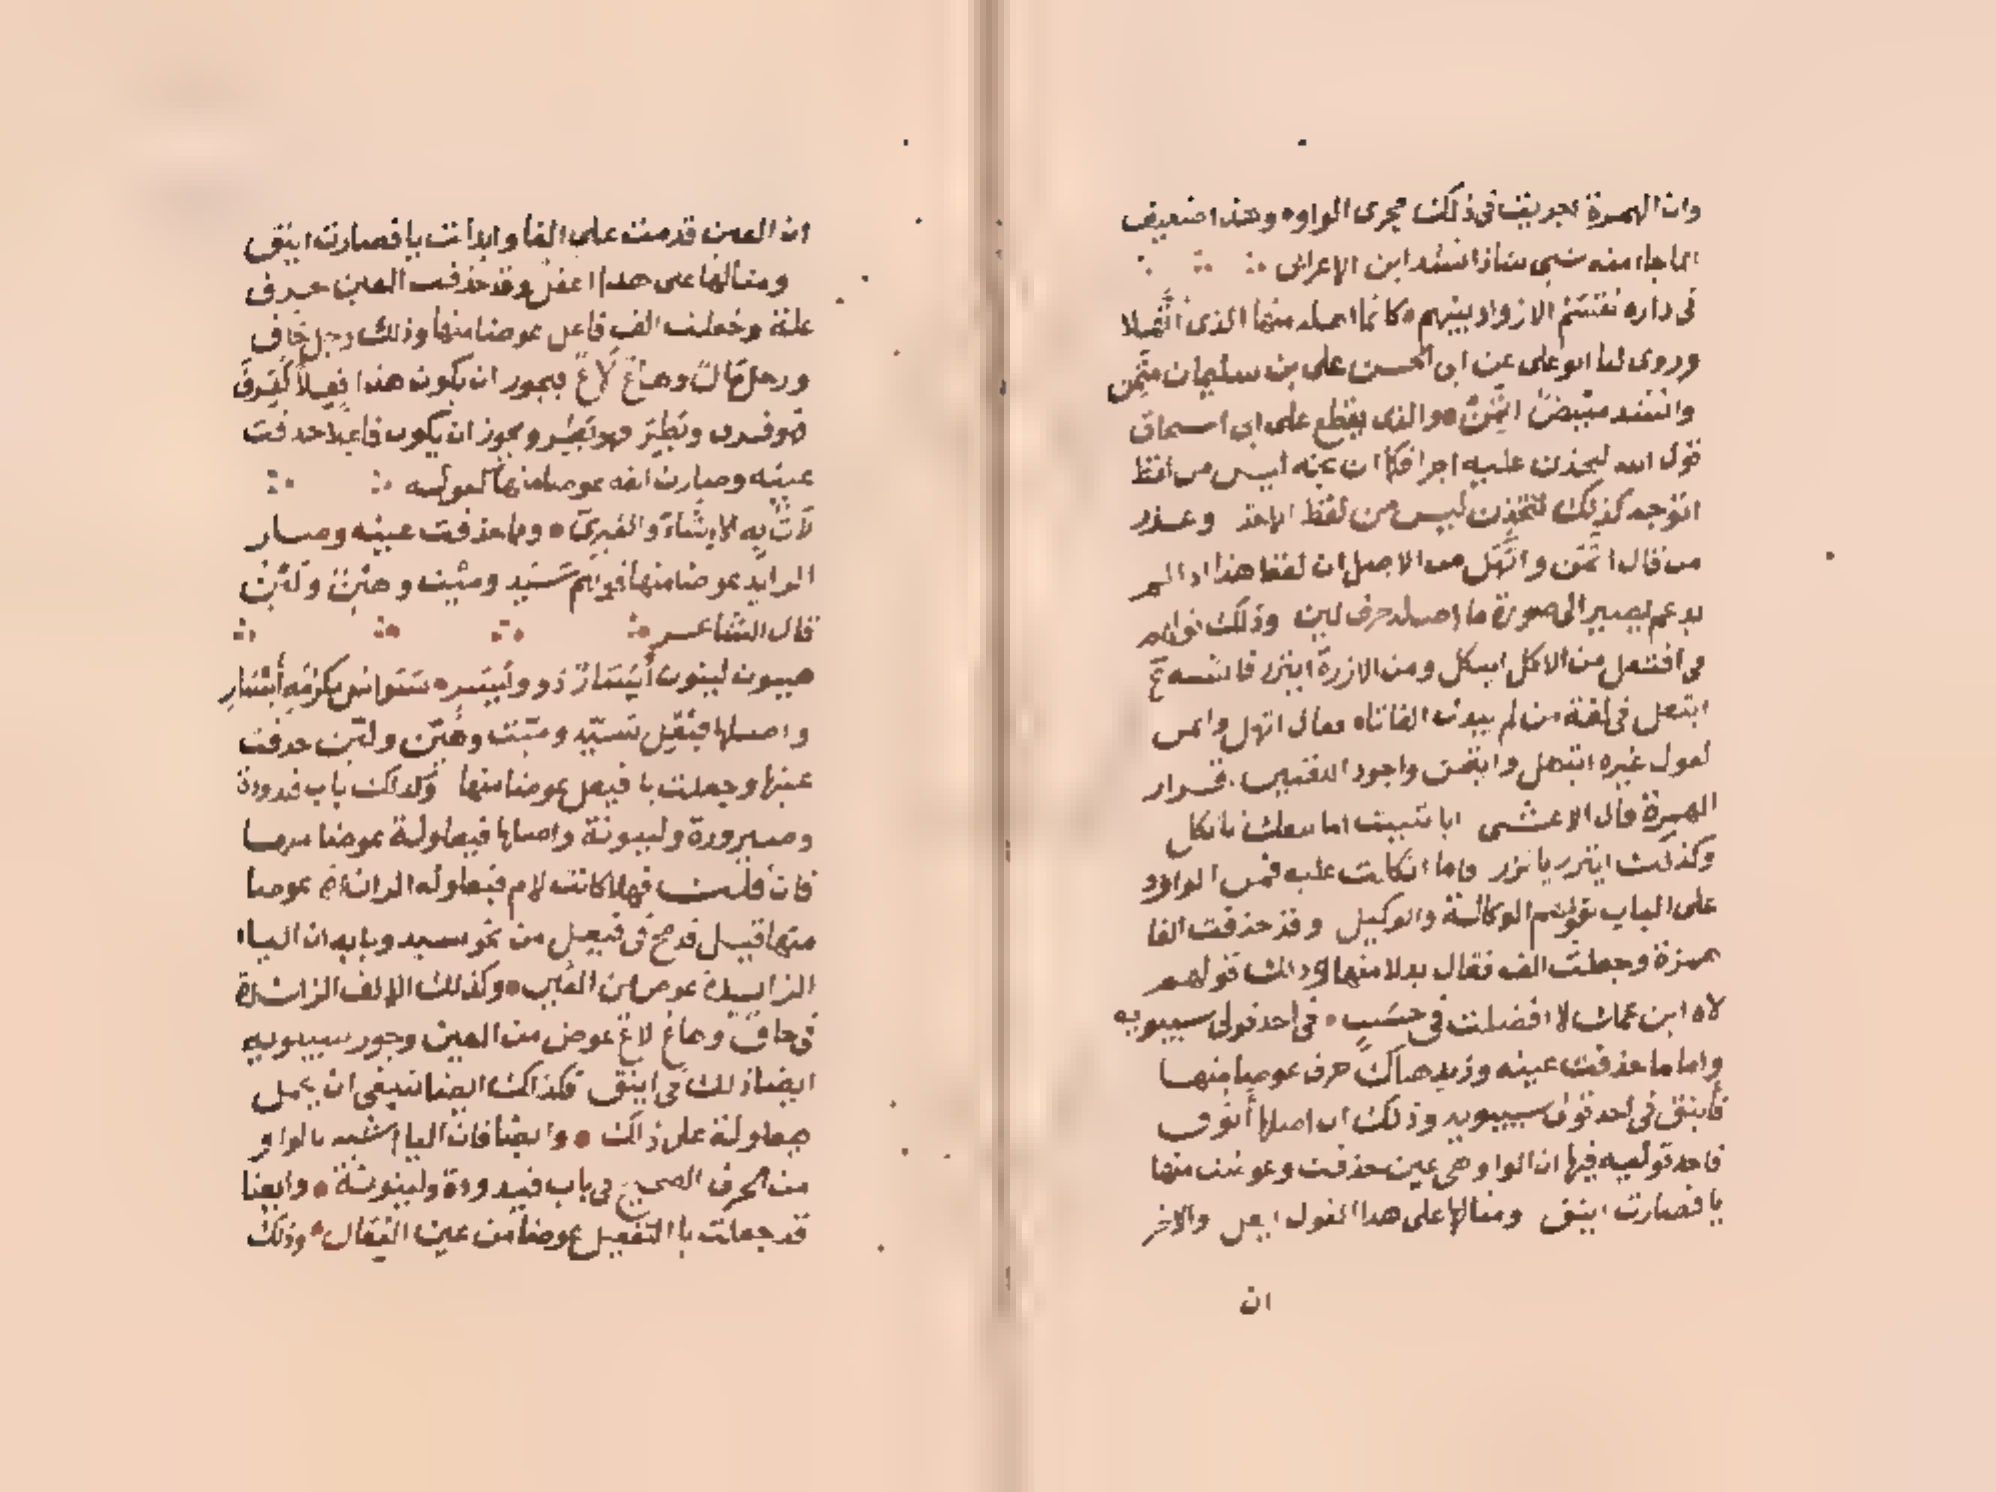 وان الهمزة اجريت في ذلك مجرى الواو وهذا ضعيف
انما جاء منه شي شاذ انشد ابن الاعرابي
في داره تقتسم الازواد بينهم كانما اهله منها الذي اتهلا
وروى لنا ابو علي عن ابي الحسن علي بن سليمن متمن
وانشد مبيض اتمن والذي يقطع على ابي اسحاق
قول الله لتخذت عليه اجرا فكما ان تجه ليس من لفظ
الوجه كذلك تخذت ليس من لفظ الاخذ وعذر
من قال اتمن واتهل من الاصل ان لفظ هذا اذا لم
يدغم يصير الى صورة ما اصله حرف لين وذلك قولهم
في افتعل من الاكل ايتكل ومن الازرة ايتزر فاشبه ح
ايتعل في لغة من لم يبدل الفا تاء فقال اتهل واتمن
لقول غيره ايتهل وايتمن واجود اللغتين اقرار
الهمزة قال الاعشى ابا ثبيت اما تنفك تاتكل
وكذلك ايتزر ياتزر فاما اتكلت عليه فمن الواو
على الباب لقولهم الوكالة والوكيل وقد حذفت الفا
همزة وجعلت الف فعال بدلا منها وذلك قولهم
لاه ابن عمك لا افضلت في حسب في احد قولي سيبويه
واما ما حذفت عينه وزيد هناك حرف عوضا منها
فأينق في احد قولي سيبويه وذلك ان اصلها أنوق
فاحد قوليه فيها ان الواو وهي عين حذفت وعوضت منها
يا فصارت اينق ومثالها على هذا القول ايفل والاخر
ان
ان العين قدمت على الفا وابدلت يا فصارت اينق
ومثالها على هذا اعفل وقد حذفت العين حرف
علة وجعلت الف فاعل عوضا منها وذلك رجل خاف
ورجل مال وهاع لاع فيجوز ان يكون هذا فعلا كفرق
فهو فرق وبطر فهو بطر ويجوز ان يكون فاعلا حذفت
عينه وصارت الفه عوضا منها كقوله
لاث به الاشاء والعبري ومما حذفت عينه وصار
الزايد عوضا منها قولهم سيد وميت وهين ولين
قال الشاعر
هينون لينون أيسار ذوو يسر سواس مكرمة أبناء ايسار
واصلها فيعل سيد وميت وهين ولين حذفت
عينها وجعلت يا فيعل عوضا منها وكذلك باب قيدودة
وصيرورة وكينونة واصلها فيعلولة عوضا منها
فان قلت فهلا كانت لام فيعلوله الزائدة عوضا
منها قيل قد صح في فيعل من نحو سيد وبابه ان الياء
الزايدة عوض من العين وكذلك الالف الزائدة
في خاف وهاع لاع عوض من العين وجوز سيبويه
ايضا ذلك في اينق فكذلك ايضا ينبغي ان يحمل
فيعلولة على ذلك وايضا فان الياء اشبه بالواو
من الحرف الصحيح في باب قيدودة وكينونة وايضا
قد جعلت يا التفعيل عوضا من عين الفعال وذلك